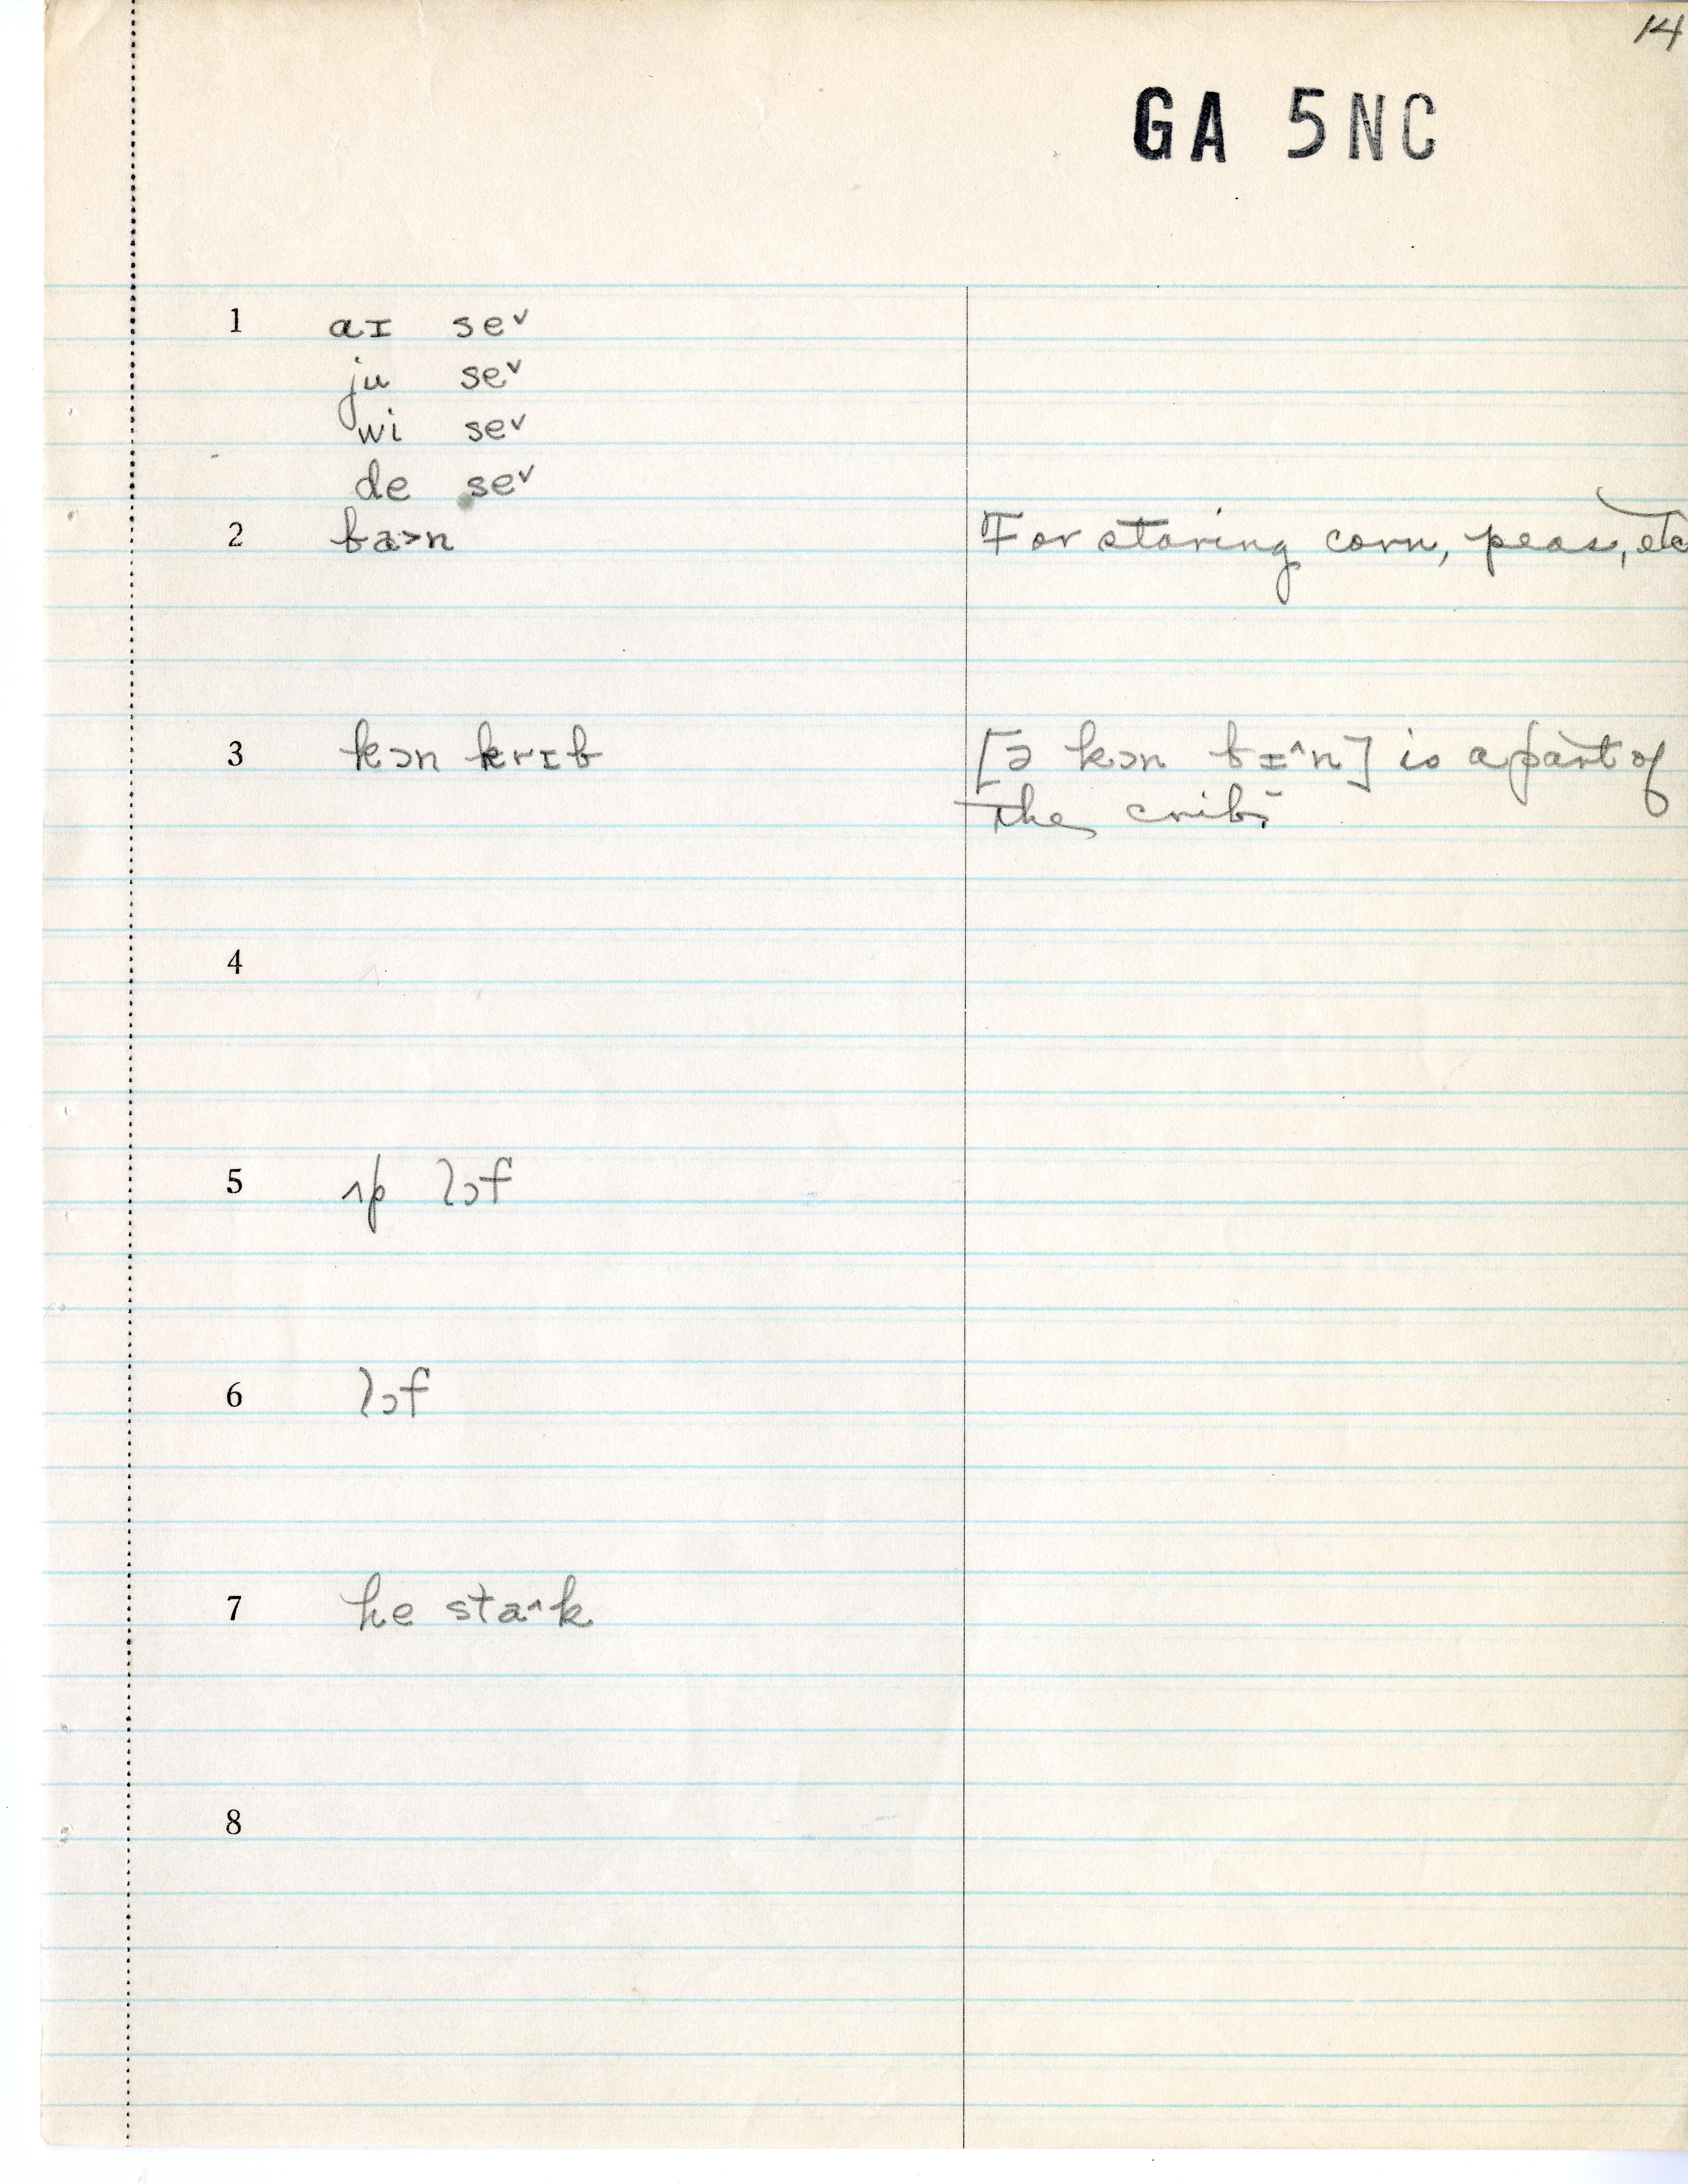 14
GA 5NC
1 aɪ se˅
ju se˅
wi se˅
de se˅
2 ba>n For storing corn, peas, etc
3 kɔn krɪb [ə kɔn bɪ^n] is a part of
the crib.
4
5 ʌp lɔf
6 lɔf
7 he sta^k
8